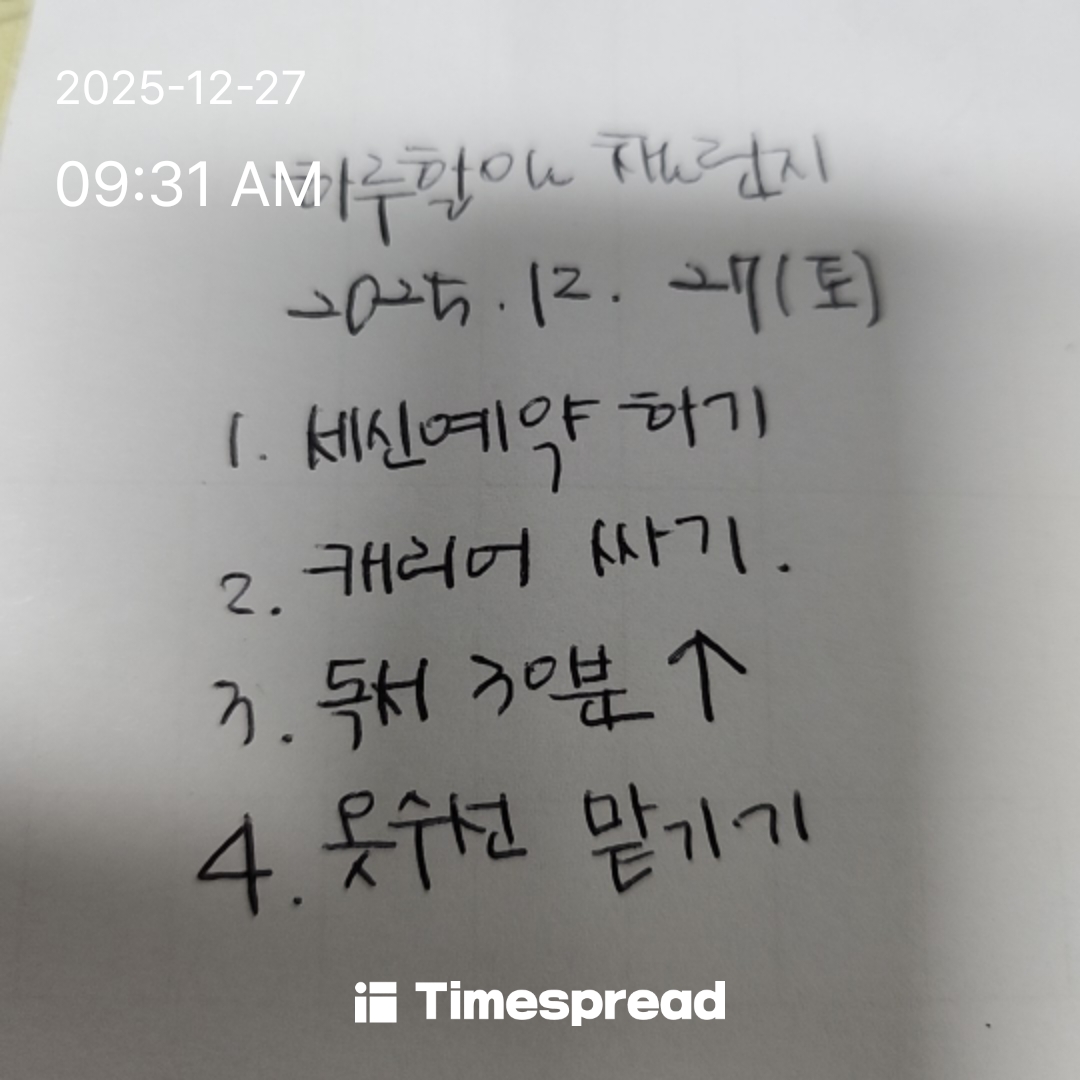 2025-12-27
09:31 AM
하루할일 챌린지
2025.12. 27(토)
1. 세신예약 하기
2. 캐리어 싸기.
3. 독서 30분 ↑
4. 옷수선 맡기기
Timespread